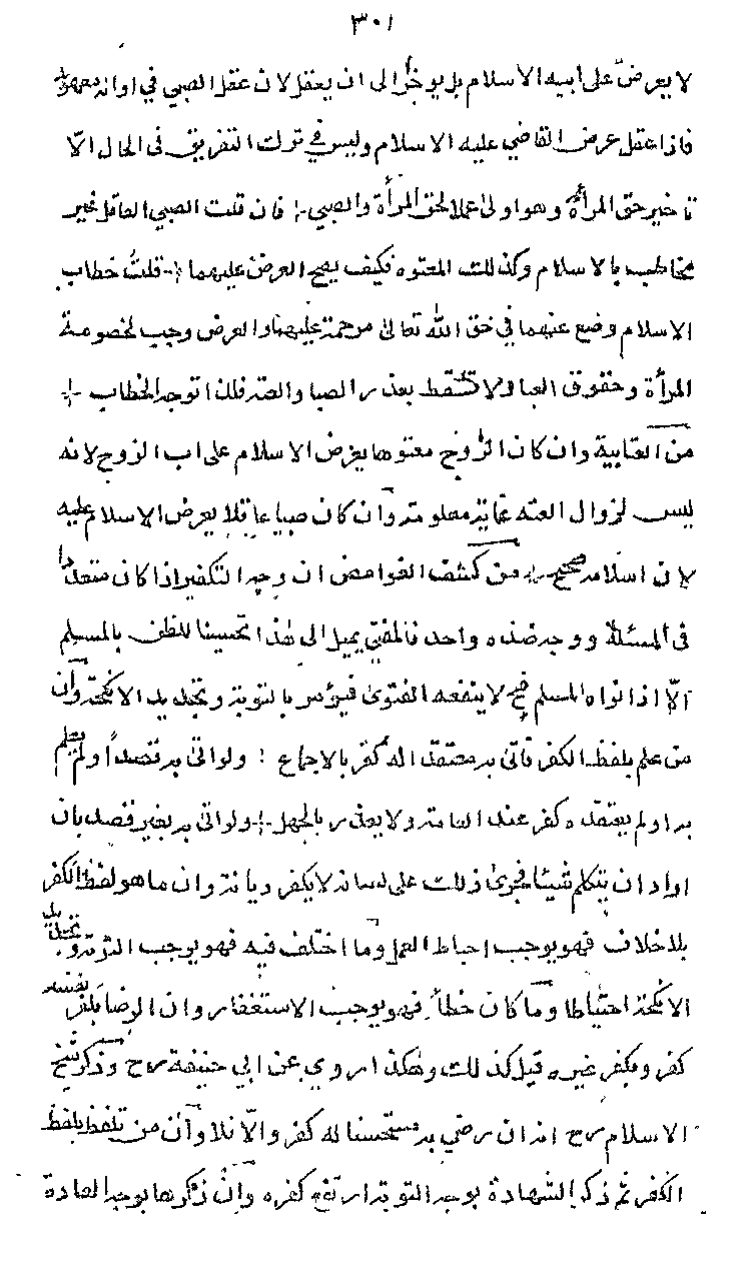 ٣٠١
لا يعرض على ابيه الاسلام بل يوخر الى ان يعقل لان عقل الصبي في اوانه معهود
فاذا عقل عرض القاضي عليه الاسلام وليس في ترك التفريق في الحال الّا
تاخير حق المرأة وهو اولى عملا لحق المرأة والصبي فان قلت الصبي العاقل غير
مخاطب بالاسلام وكذلك المعتوه فكيف يصح العرض عليهما قلتُ خطاب
الاسلام وضع عنهما في حق الله تعالى مرحمة عليهما والعرض وجب لخصومة
المرأة وحقوق العباد لا تسقط بعذر الصبا والعته فلذا توجه الخطاب
من العتابية وان كان الزوج معتوها يعرض الاسلام على اب الزوج لانه
ليس لزوال العته غاية معلومة وان كان صبيا عاقلا يعرض الاسلام عليه
لان اسلامه صحيح من كشف الغوامض ان وجه التكفير اذا كان متعددا
فى المسئلة ووجه ضده واحد فالمفتي يميل الى هذا تحسينا للظن بالمسلم
الّا اذا نواه المسلم فح لا ينفعه الفتوى فيؤمر بالتوبة وتجديد الانكحة وان
من علم بلفظ الكفر فأتى به معتقدا له كفر بالاجماع ولو اتى به قصداً ولم يعلم
به او لم يعتقده كفر عند العامة ولا يعذر بالجهل ولو اتى به بغير قصد بان
اراد ان يتكلم شيئا فجرى ذلك على لسانه لا يكفر ديانة وان ما هو لفظ الكفر
بلا خلاف فهو يوجب احباط العمل وما اختلف فيه فهو يوجب التوبة وتجديد
الانكحة احتياطا وما كان خطأ فهو يوجب الاستغفار وان الرضا بكفر نفسه
كفر وبكفر غيره قيل كذلك وهكذا روي عن ابي حنيفة رح وذكر شيخ
الاسلام رح انه ان رضي به مستحسنا له كفر والّا فلا وان من تلفظ بلفظ
الكفر ثم ذكر الشهادة بوجه التوبة ارتفع كفره وان ذكرها بوجه العادة